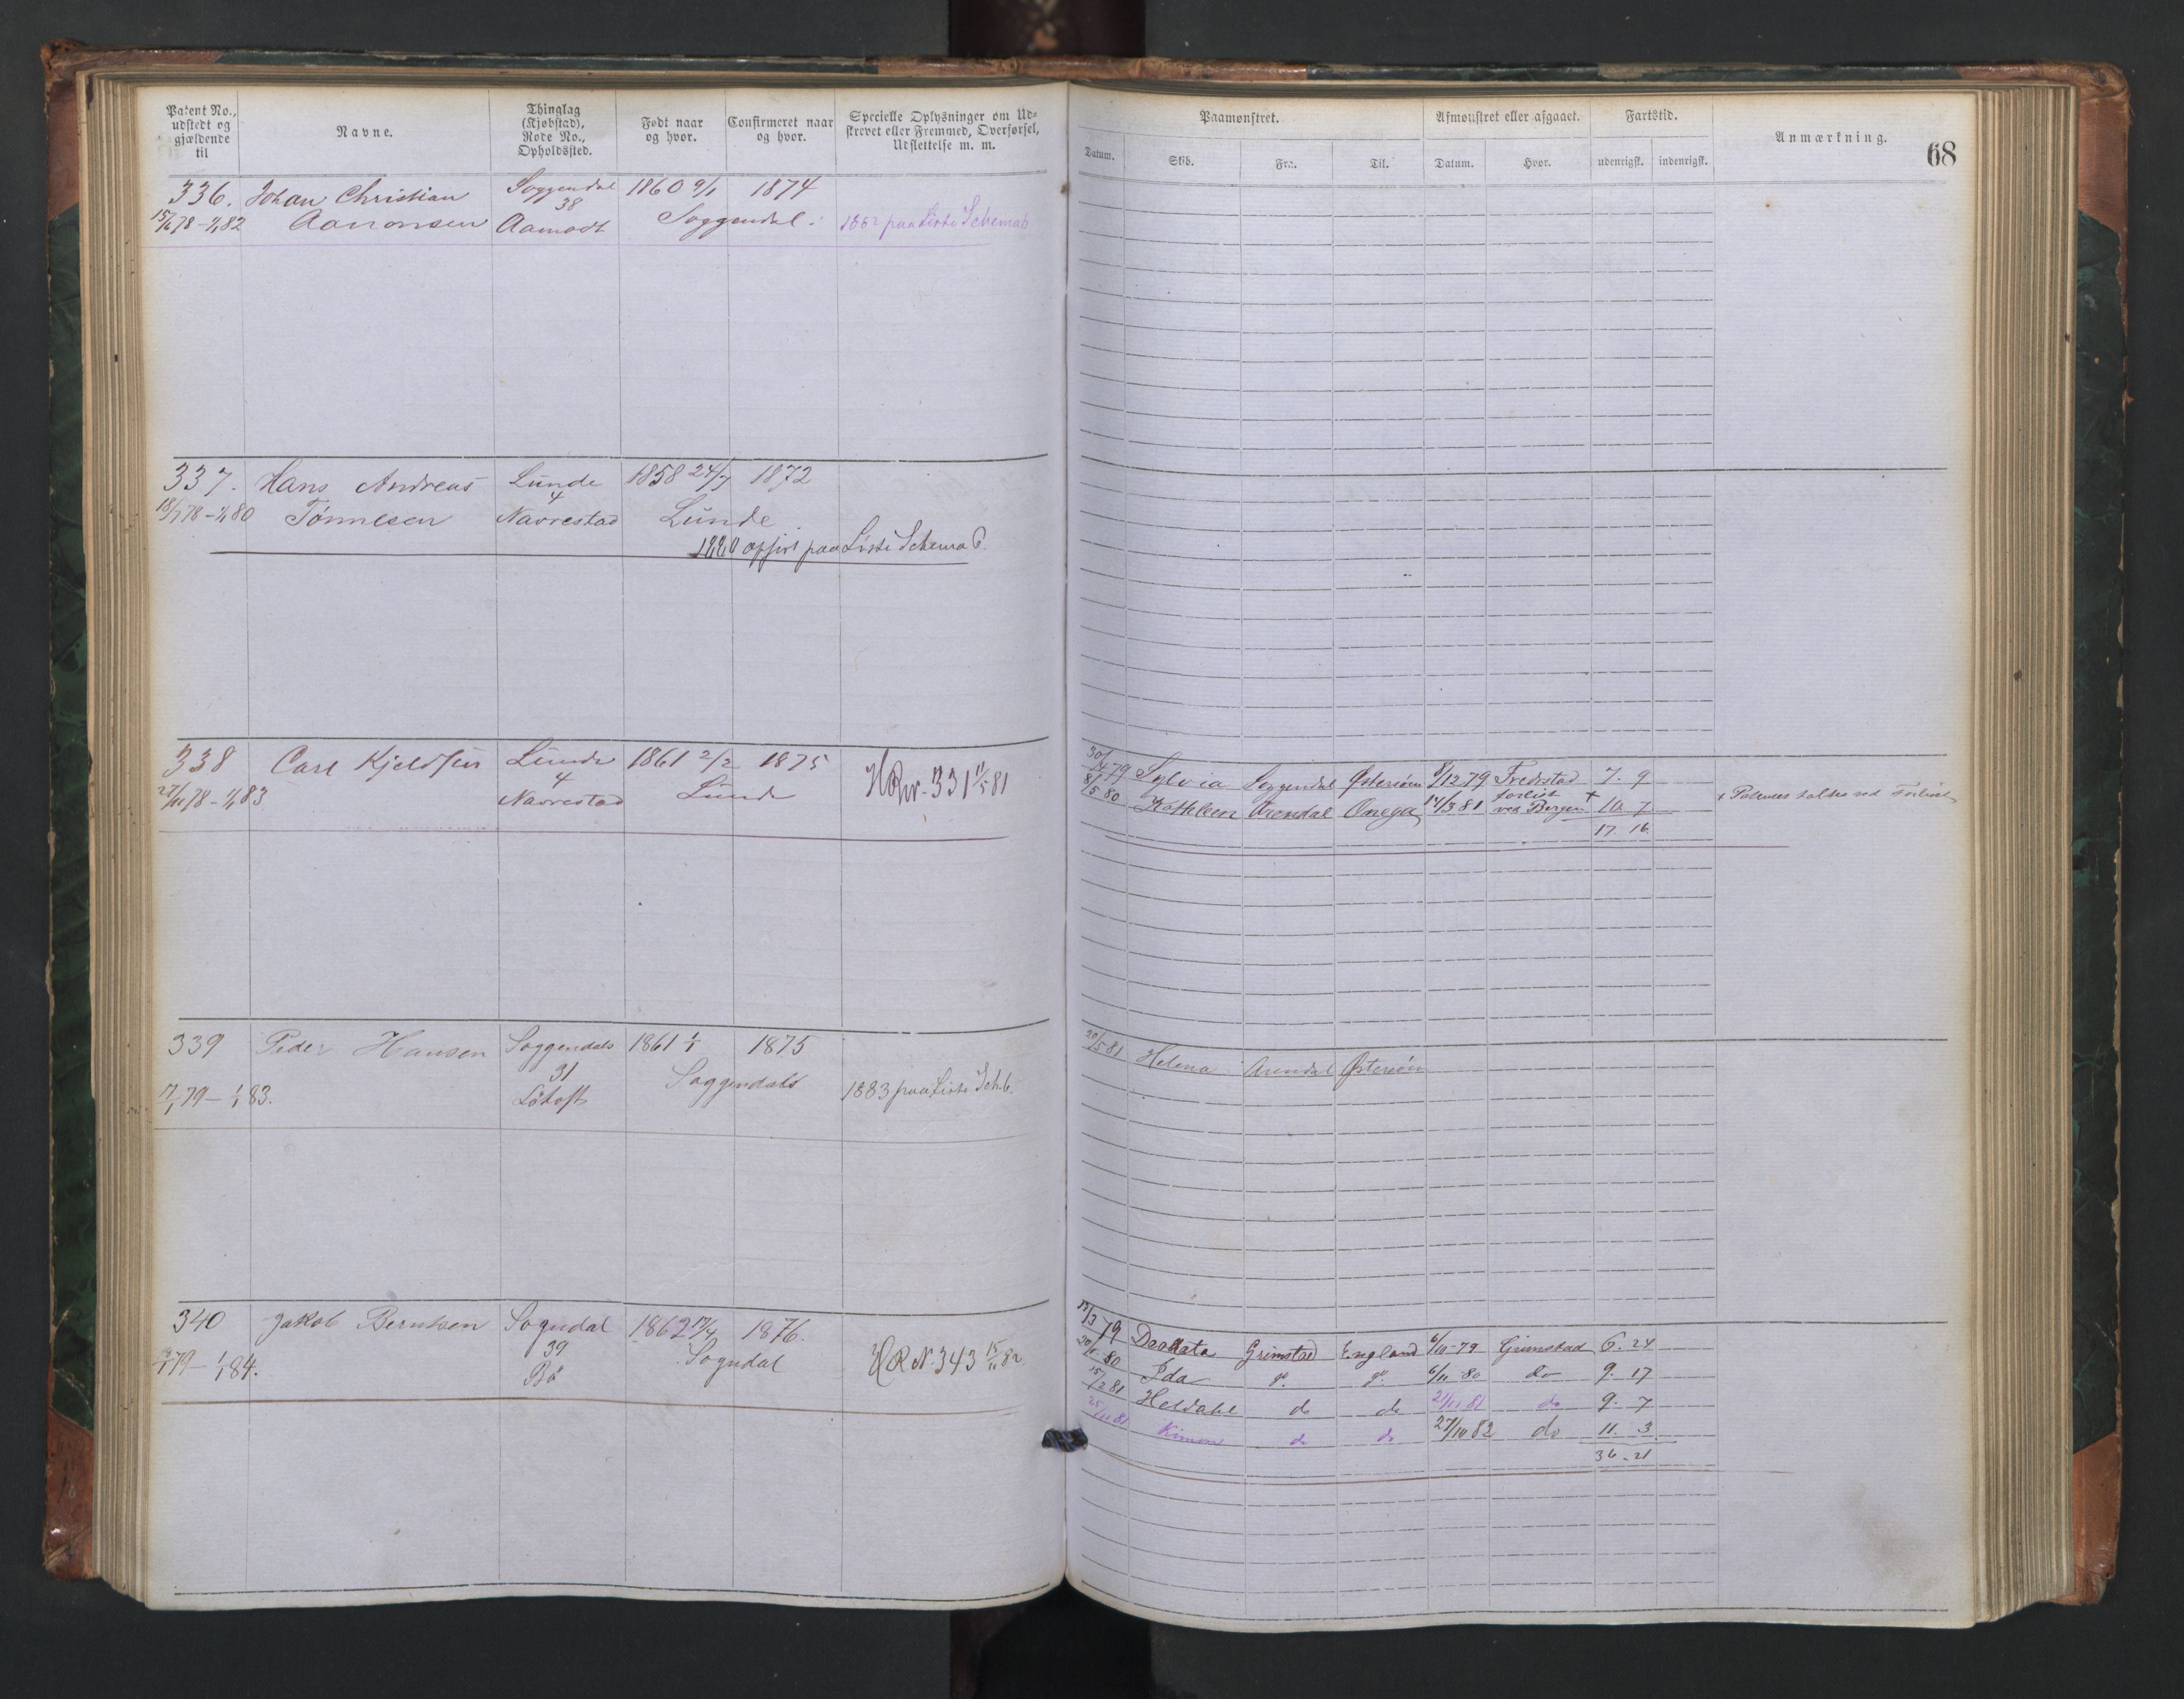 Patent No., udstedt og gjældende til
Navne.
Thinglag (Kjøbstad), Rode No., Opholdssted.
Født naar og hvor.
Confirmeret naar og hvor.
Specielle Oplysninger om Udskrevet eller Fremmed, Overførsel, Udslettelse m. m.
336. Johan Christian Soggendal 1860 9/1 1874
38
15/6 78 - 1/1 82 Aanonsen Aamodt Soggendal. 1882 paa Liste Schema 6
337. Hans Andreas Lunde 1858 24/7 1872
4
18/7 78 - 1/1 80 Tønnesen Navrestad Lunde
1880 opført paa Liste Schema 6.
338 Carl Kjeldsen Lunde 1861 2/2 1875
4
27/11 78 - 1/1 83 Navrestad Lunde HR nr. 331 11/5 81
339 Peder Hansen Soggendals 1861 1/1 1875
31
7/1 79 - 1/1 83. Løtoft Soggendals 1883 paa Liste Sch. 6.
340 Jakob Berntsen Sogndal 1862 17/4 1876.
39
79 - 1/1 84. Bø Sogndal HR N. 343 15/11 82.
68
Paamønstret.
Afmønstret eller afgaaet.
Fartstid.
Anmærkning.
Datum. Skib. Fra. Til. Datum. Hvor. udenrigsk. indenrigsk.
30/4 79 Sylvia Soggendal Østersøen 8/12 79 Fredrstad 7. 9
8/5 80 Kathleen Arendal Onega 14/3 81 forlist ved Bergen + 10. 7 + Patenet tabt ved Forliset
17. 16.
20/5 81 Helena Arendal Østersøn
13/3 79 Deodata Grimstad England 6/10 - 79 Grimstad 6. 24
20/1 80 Ida do. do. 6/11 80 do 9. 17
15/2 81 Heldahl do do 21/11 81 do 9. 7
25/11 81 Kimon do do 27/10 82 do 11. 3
36 - 21